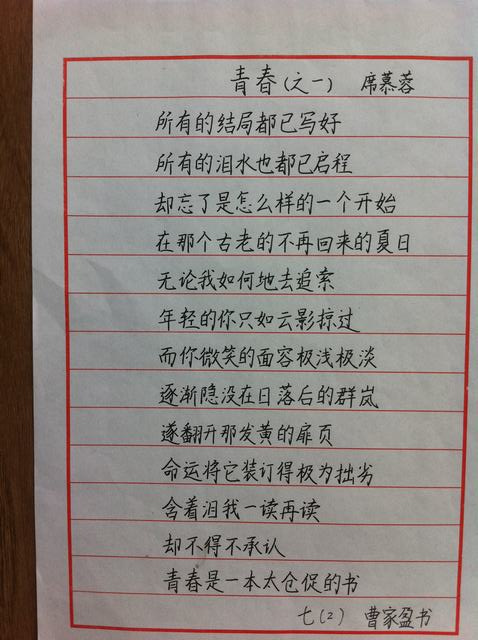 青春（之一） 席慕蓉
所有的结局都已写好
所有的泪水也都已启程
却忘了是怎么样的一个开始
在那个古老的不再回来的夏日
无论我如何地去追索
年轻的你只如云影掠过
而你微笑的面容极浅极淡
逐渐隐没在日落后的群岚
遂翻开那发黄的扉页
命运将它装订得极为拙劣
含着泪我一读再读
却不得不承认
青春是一本太仓促的书
七（2） 曹家盈书